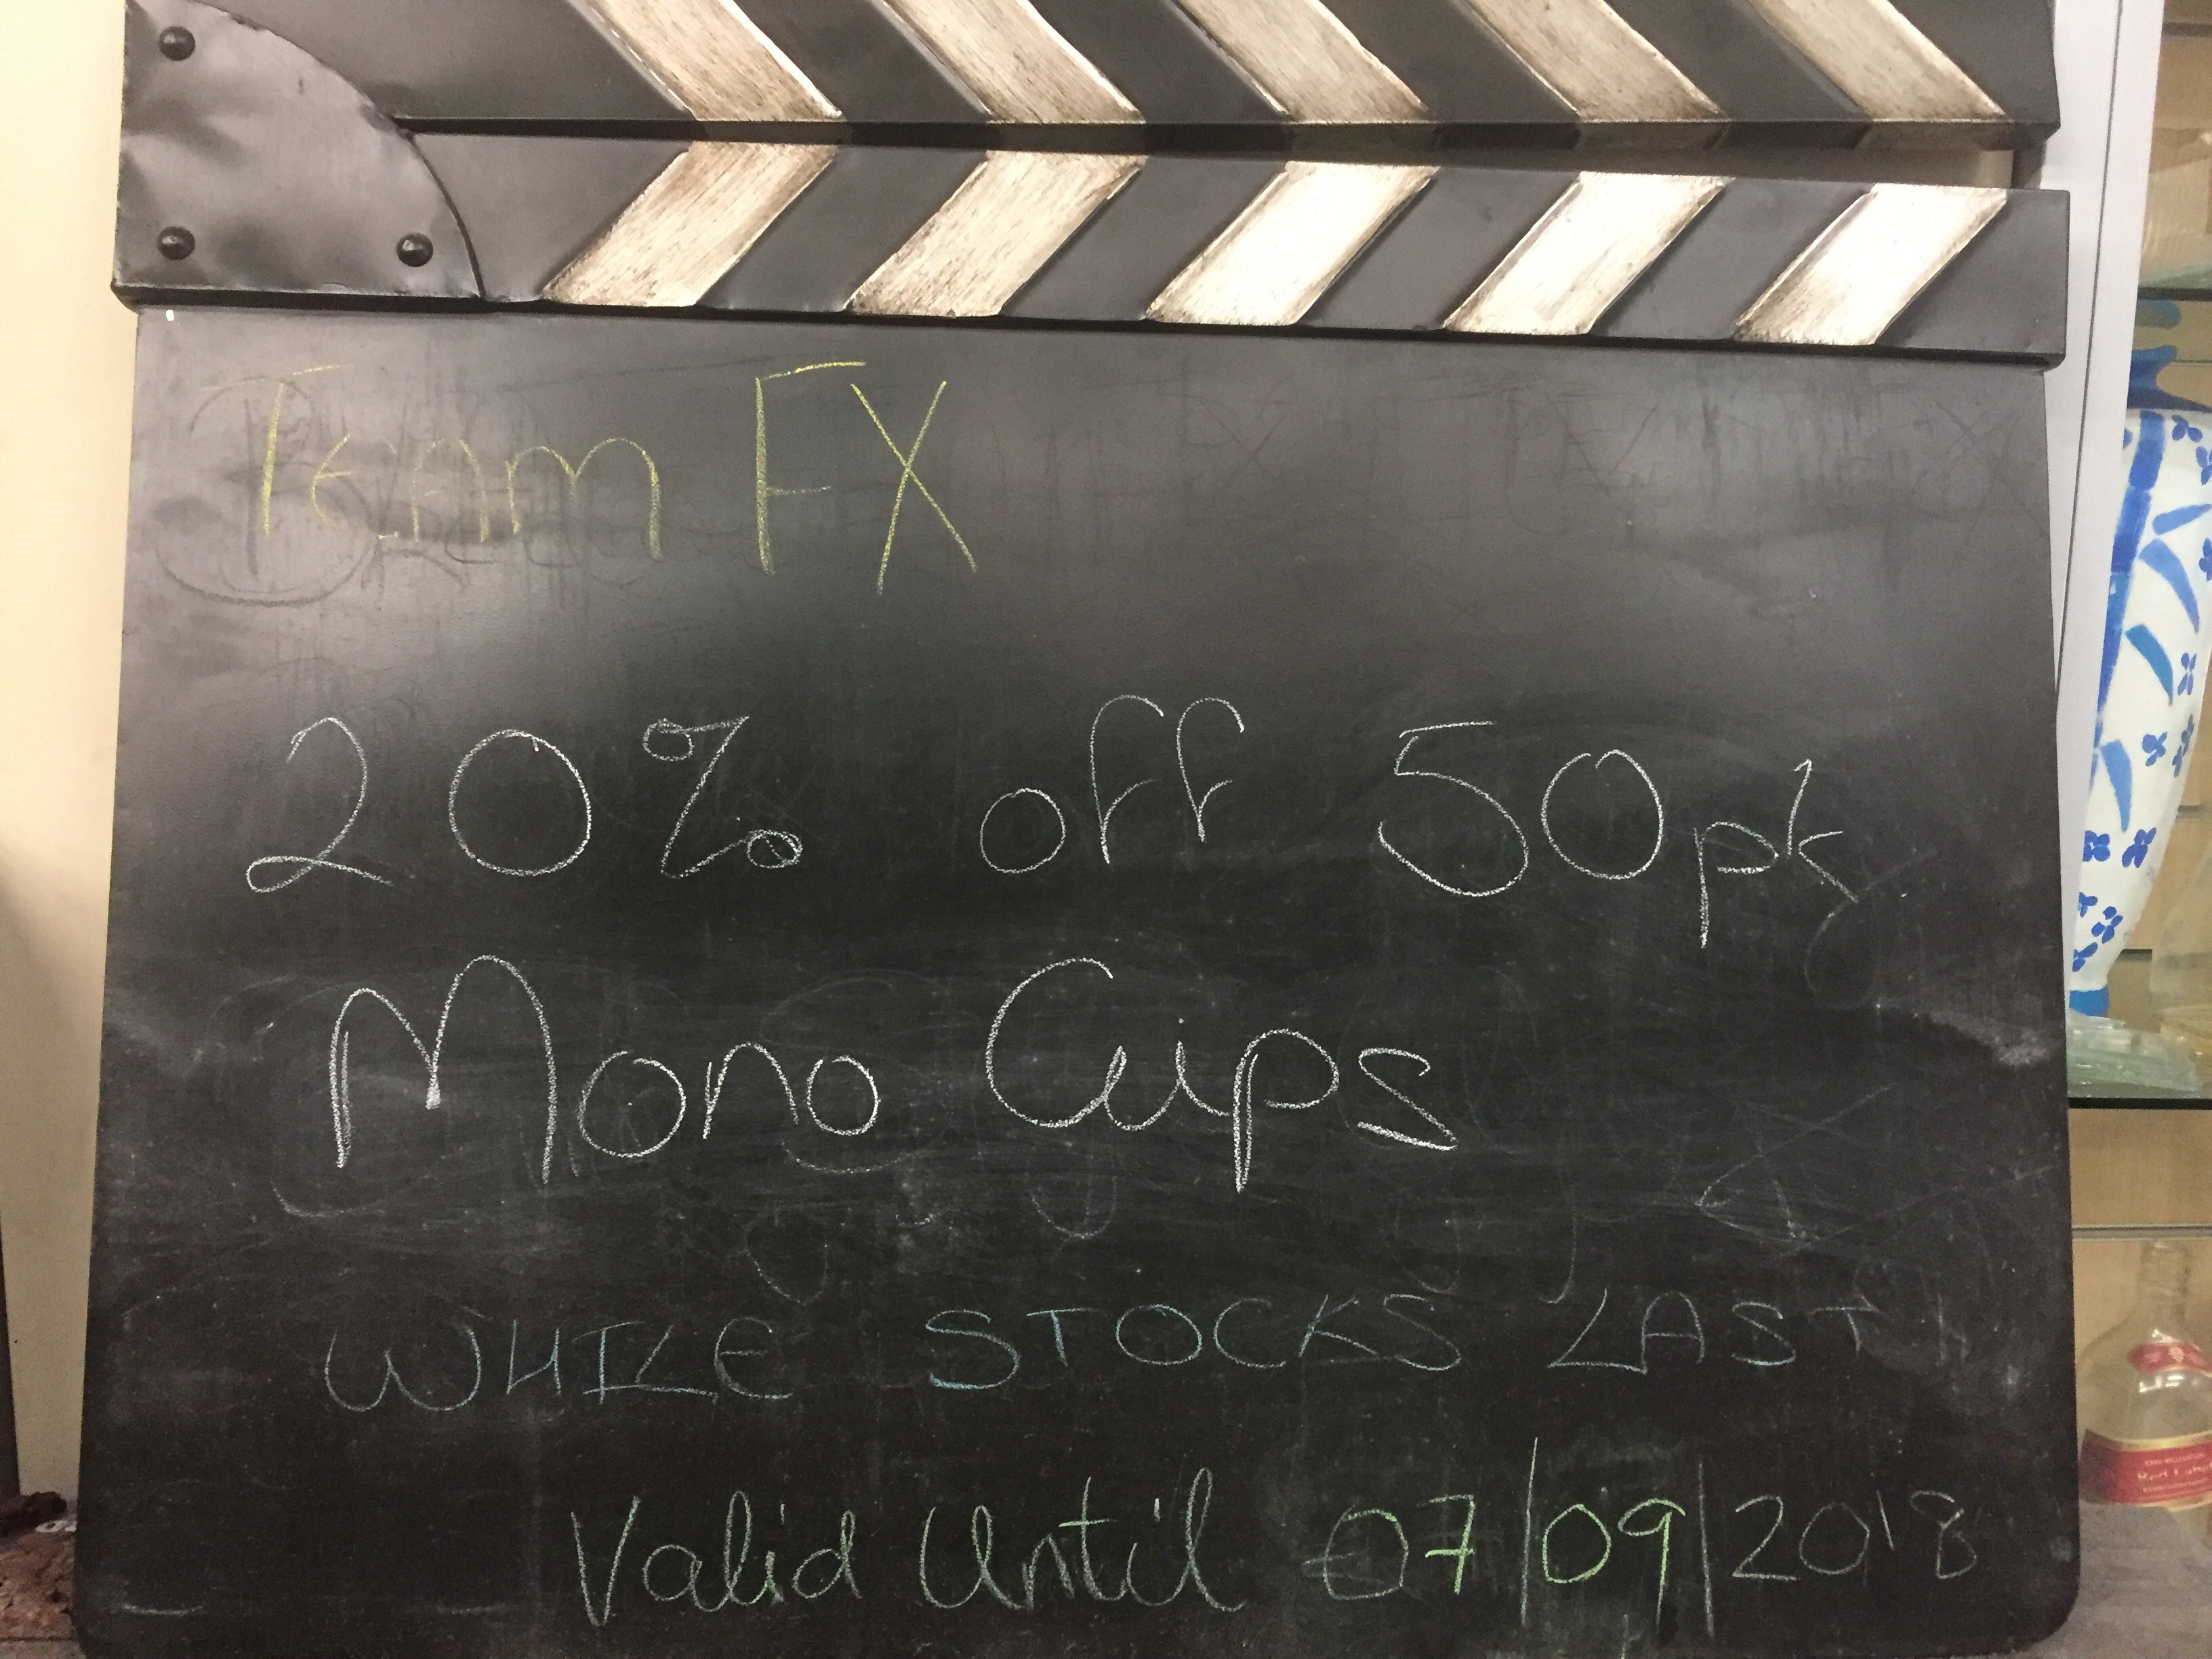 Team FX
20% off 50pk
Mono Cups
WHILE STOCKS LAST
Valid Until 07/09/2018
Red Label